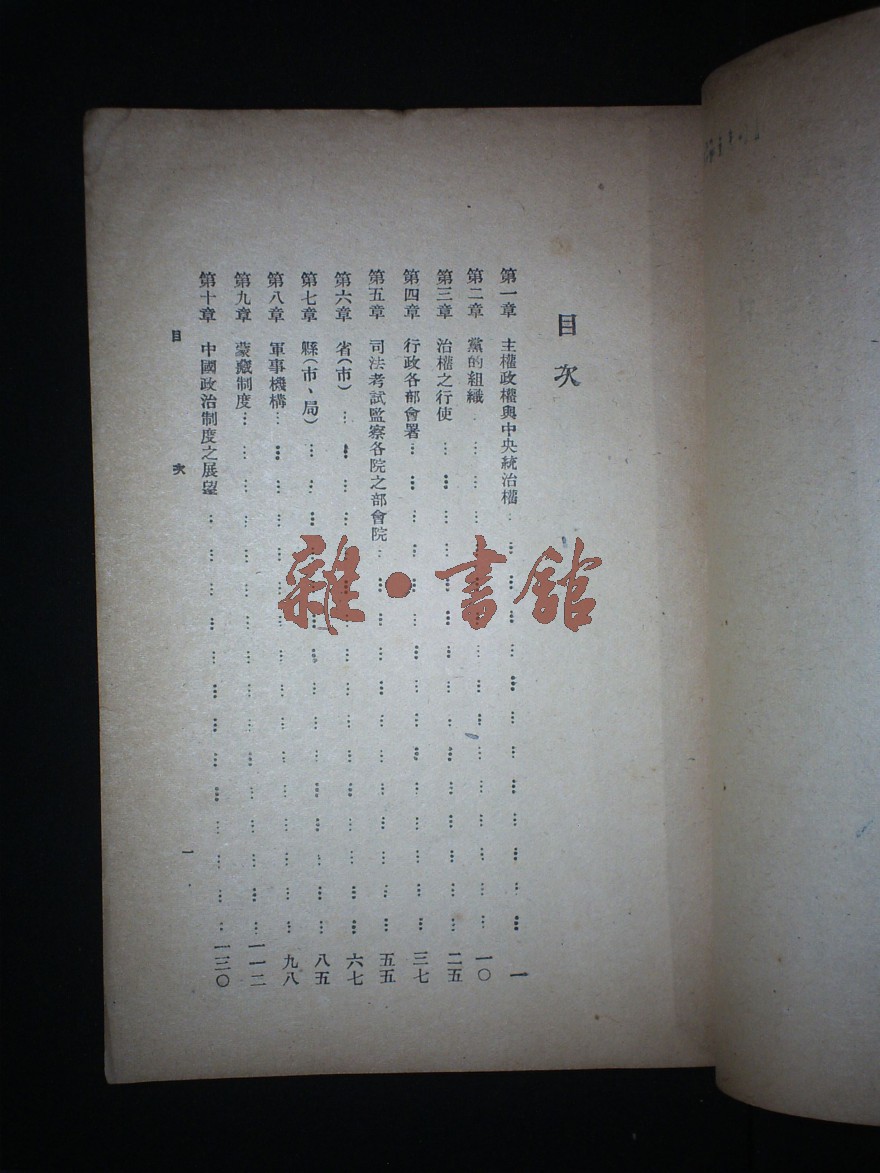 目次
第一章 主權政權與中央統治權 一
第二章 黨的組織 一〇
第三章 治權之行使 二五
第四章 行政各部會署 三七
第五章 司法考試監察各院之部會院 五五
第六章 省(市) 六七
第七章 縣(市、局) 八五
第八章 軍事機構 九八
第九章 蒙藏制度 一一二
第十章 中國政治制度之展望 一三〇
目次 一
雜·書館